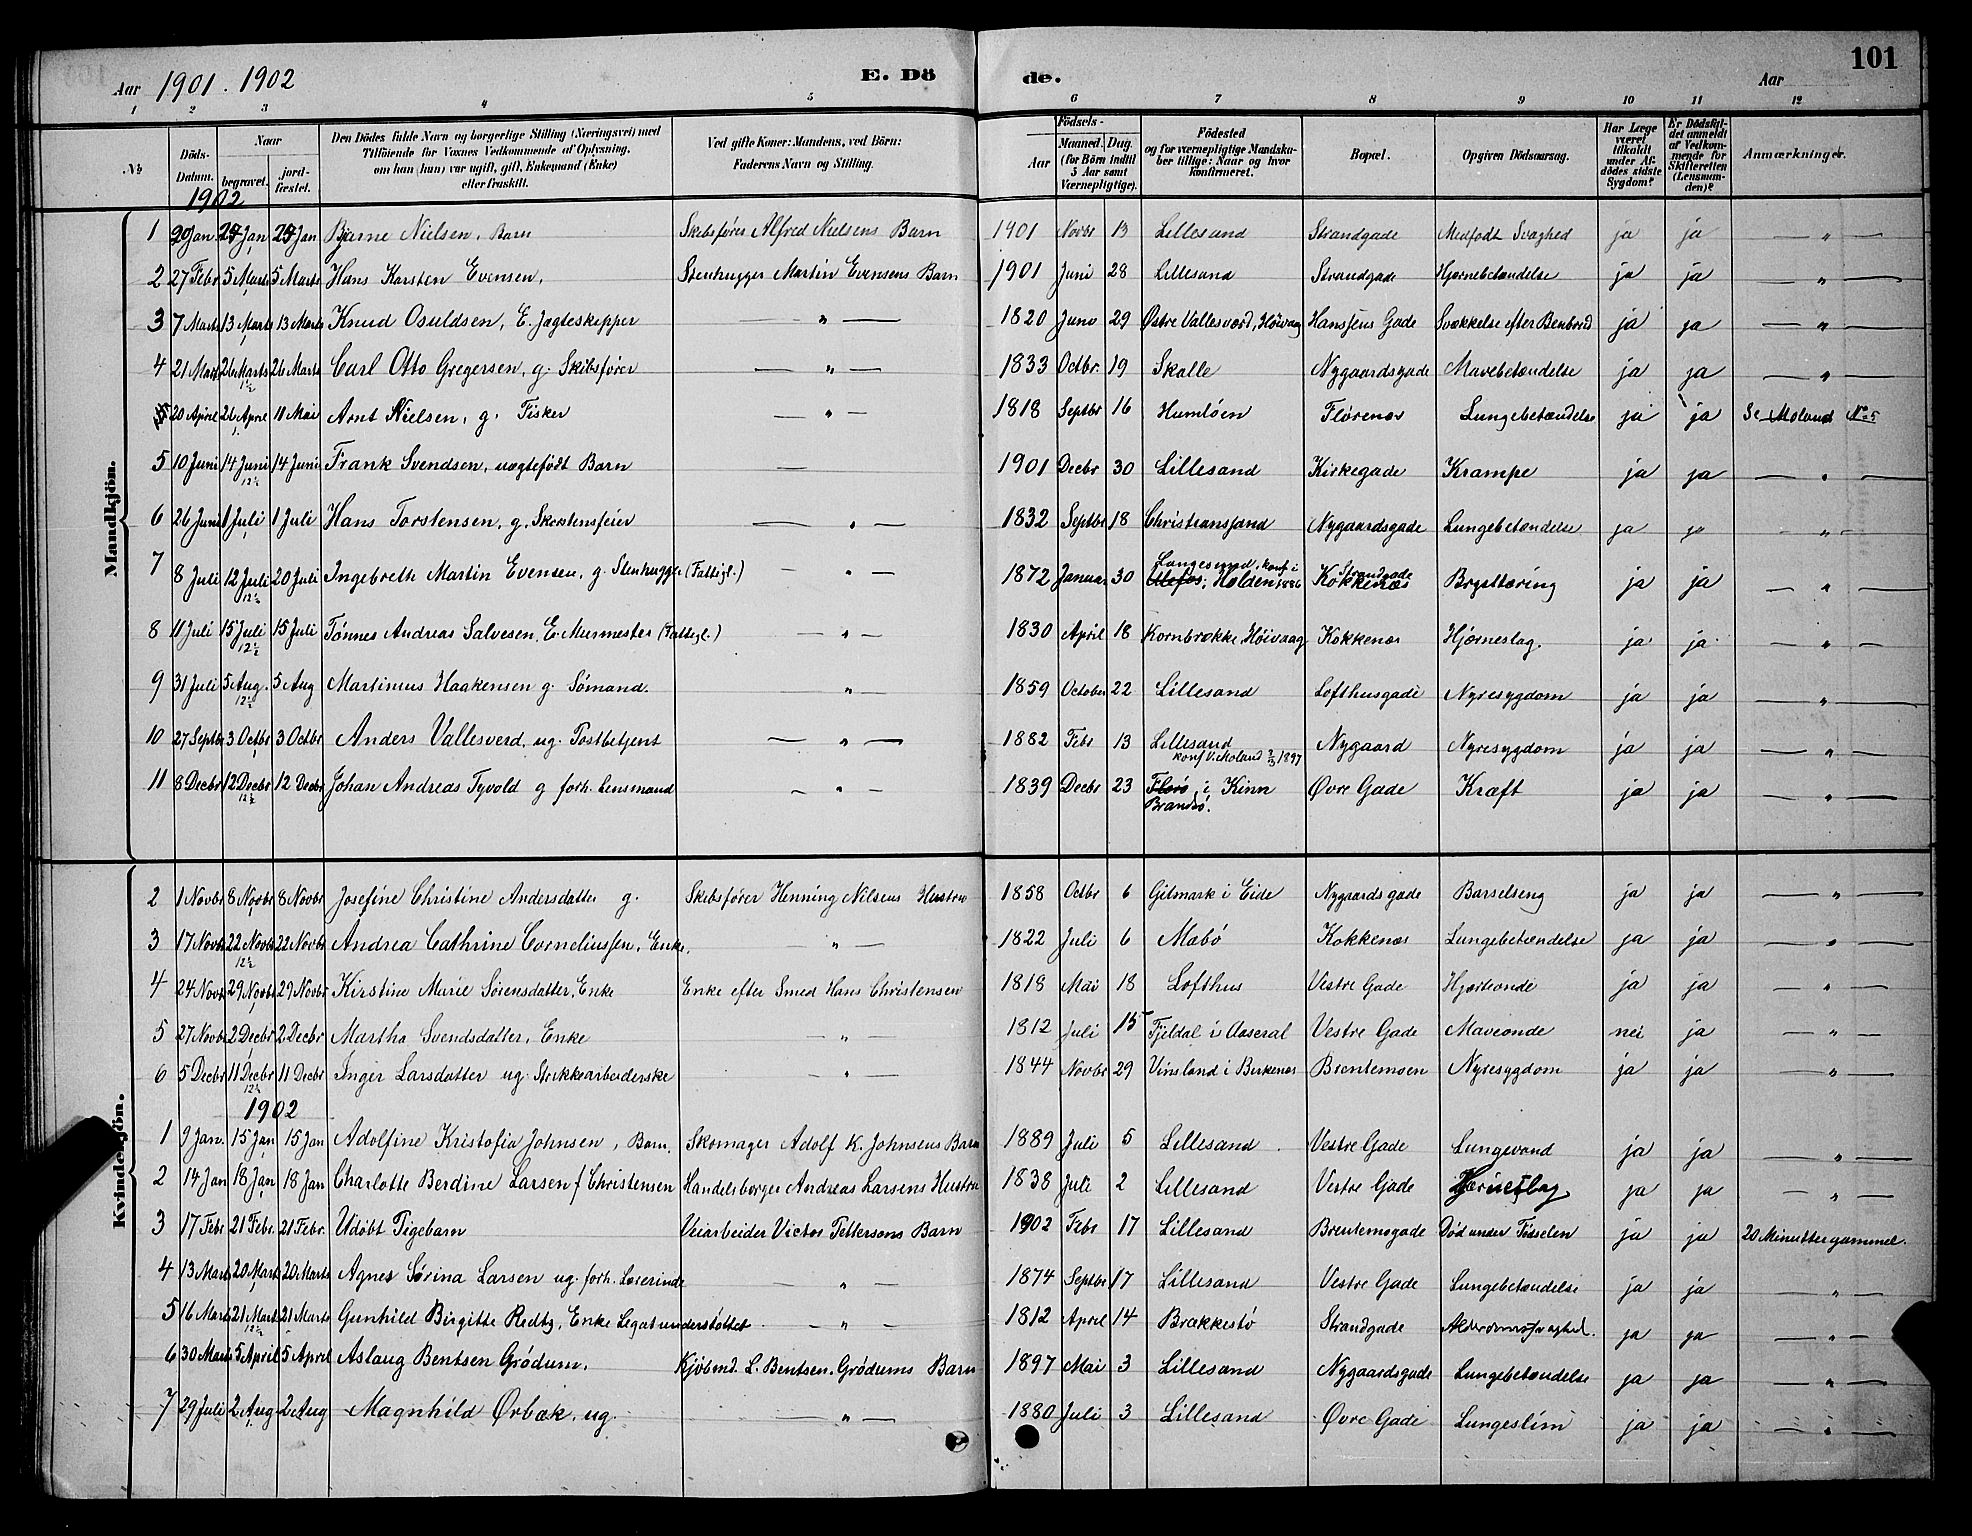 Aar 1901. 1902 E. Dö de. Aar 101
1 2 3 4 5 6 7 8 9 10 11 12
№ Döds-Datum. Naar begravet. jordfæstet. Den Dödes fulde Navn og borgerlige Stilling (Næringsvei) med Tilföiende for Voxnes Vedkommende af Oplysning, om han (hun) var ugift, gift, Enkemand (Enke) eller fraskilt. Ved gifte Koner: Mandens, ved Börn: Faderens Navn og Stilling. Födsels- Aar Maaned. Dag. (for Börn indtil 5 Aar samt Værnepligtige). Födested og for værnepligtige Mandskaber tillige: Naar og hvor konfirmeret. Bopæl. Opgiven Dödsaarsag. Har Læge været tilkaldt under Afdödes sidste Sygdom? Er Dödsfaldet anmeldt af Vedkommende for Skifteretten (Lensmanden)? Anmærkninger.
1902
Mandkjön.
1 20 Jan. 25 Jan 25 Jan Bjarne Nielsen, Barn Skibsfører Alfred Nielsens Barn 1901 Novbr 13 Lillesand Strandgade Medfødt Svaghed ja ja — „ —
2 27 Febr 5 Marts 5 Marts Hans Karsten Evensen, Stenhugger Martin Evensens Barn 1901 Juni 28 Lillesand Strandgade Hjernebetændelse ja ja — „ —
3 7 Marts 13 Marts 13 Marts Knud Osuldsen, E. Jægteskipper — „ — 1820 Juno 29 Østre Vallesværd, Höivaag Hansens Gade Svækkelse efter Benbrud ja ja — „ —
4 21 Marts 26 Marts 26 Marts Carl Otto Gregersen, g. Skibsfører — „ — 1833 Octbr. 19 Skalle Nygaardsgade Mavebetændelse ja ja — „ —
20 April 26 April 11 Mai Arnt Nielsen, g. Fisker — „ — 1818 Septbr 16 Humlöen Florenæs Lungebetændelse ja ja Se Moland № 5
5 10 Juni 14 Juni 14 Juni Frank Svendsen, uægtefødt Barn — 1901 Decbr 30 Lillesand Kirkegade Krampe ja ja — „ —
6 26 Juni 1 Juli 1 Juli Hans Torstensen, g. Skorstensfeier — „ — 1832 Septbr 18 Christiansand Nygaardsgade Lungebetændelse ja ja — „ —
7 8 Juli 12 Juli 20 Juli Ingebreth Martin Evensen, g. Stenhugge (Fattigl.) — „ — 1872 Januar 30 Langesund, konf i Ulefos, Holden 1886 Strandgade Kokkenæs Brysttæring ja ja — „ —
8 11 Juli 15 Juli 15 Juli Tönnes Andreas Salvesen, E. Murmester (Fattigl.) — „ — 1830 April 18 Kornbrække Höivaag Kokkenæs Hjerneslag. ja ja — „ —
9 31 Juli 5 Aug. 5 Aug Martinius Haakensen g. Sömand. „ — 1859 October 22 Lillesand Lofthusgade Nyresygdom ja ja — „ —
10 27 Septbr 3 Octbr 3 Octbr Anders Vallesverd, ug. Postbetjent — „ — 1882 Febr 13 Lillesand konf V. Moland 1897 Nygaard Nyresygdom ja ja — „ —
11 8 Decbr 12 Decbr 12 Decbr Johan Andreas Tyvold g forh. Lensmand — „ — 1839 Decbr 23 Florø i Kinn Brandsö. Øvre Gade Kræft ja ja — „ —
Kvindekjön.
2 1 Novbr 8 Novbr 8 Novbr Josefine Christine Andersdatter g. Skibsfører Henning Nilsens Hustru 1858 Octbr 6 Gitmark i Eide Nygaards gade Barselseng ja ja — „ —
3 17 Novbr 22 Novbr 22 Novbr Andrea Cathrine Corneliussen, Enke. „ — 1822 Juli 6 Mabö Kokkenæs Lungebetændelse ja ja — „ —
4 24 Novbr 29 Novbr 29 Novbr Kirstine Marie Sörensdatter, Enke Enke efter Smed Hans Christensen 1818 Mai 18 Lofthus Vestre Gade Hjerteonde ja ja — „ —
5 27 Novbr 2 Decbr 2 Decbr Martha Svendsdatter, Enke — „ — 1812 Juli 15 Fjeldal i Aaseral Vestre Gade Maveonde nei ja — „ —
6 5 Decbr 11 Decbr 11 Decbr Inger Larsdatter ug. Strikkearbeiderske — „ — 1844 Novbr 29 Vinsland i Birkenæs Brentemoen Nyresygdom ja ja — „ —
1902
1 9 Jan. 15 Jan 15 Jan Adolfine Kristofia Johnsen, Barn. Skomager Adolf K. Johnsens Barn 1889 Juli 5 Lillesand Vestre Gade Lungevand ja ja — „ —
2 14 Jan 18 Jan 18 Jan Charlotte Berdine Larsen f Christensen Handelsborger Andreas Larsens Hustru 1838 Juli 2 Lillesand Vestre Gade Hjerneslag ja ja — „ —
3 17 Febr 21 Febr. 21 Febr. Udöbt Pigebarn Veiarbeider Victor Pettersons Barn 1902 Febr 17 Lillesand Brentemogade Död under Födselen ja ja 20 Minutter gammel.
4 13 Marts 20 Marts 20 Marts Agnes Sörina Larsen ug. forh. Lærerinde — „ — 1874 Septbr 17 Lillesand Vestre Gade Lungebetændelse ja ja — „ —
5 16 Marts 21 Marts 21 Marts Gunhild Birgitte Redby, Enke Legatunderstöttet — „ — 1812 April 14 Brækkestö Strandgade Alderdomssvaghed. ja ja — „ —
6 30 Marts 5 April 5 April Aslaug Bentsen Grödum. Kjöbmd. L. Bentsen Grödums Barn 1897 Mai 3 Lillesand Nygaardsgade Lungebetændelse ja ja — „ —
7 29 Juli 2 Aug 2 Aug Magnhild Ørbæk, ug. „ — 1880 Juli 3 Lillesand Øvre Gade Lungeslim ja ja — „ —